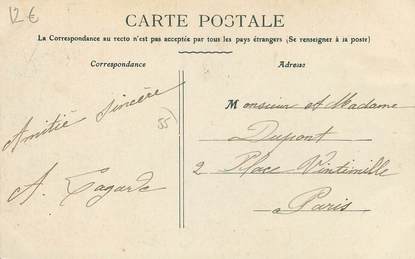 12€
CARTE POSTALE
La Correspondance au recto n'est pas acceptée par tous les pays étrangers (Se renseigner à la poste)
Correspondance
Amitié sincère
A. Lagarde
55
Adresse
Monsieur et Madame
Dupont
2 Place Vintimille
à Paris